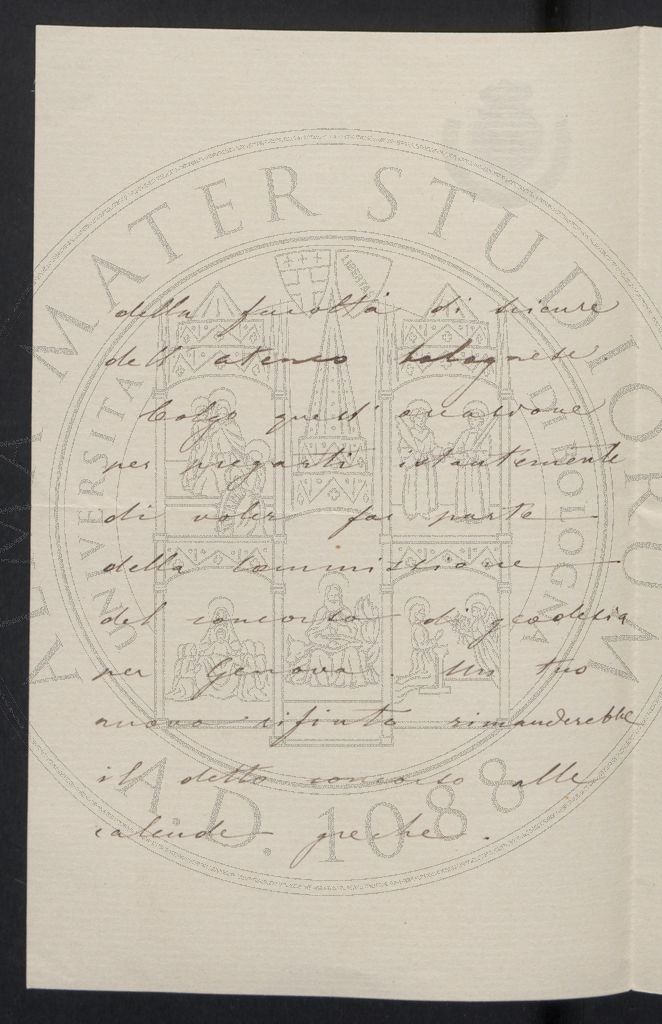 della facoltà di scienze
dell'ateneo bolognese.
Colgo quest'occasione
per pregarti istantemente
di voler far parte
della Commissione
del concorso di geodesia
per Genova. Un tuo
nuovo rifiuto rimanderebbe
il detto concorso alle
calende greche.
ALMA MATER STUDIORUM
UNIVERSITA DI BOLOGNA
LIBERTAS
A.D. 1088